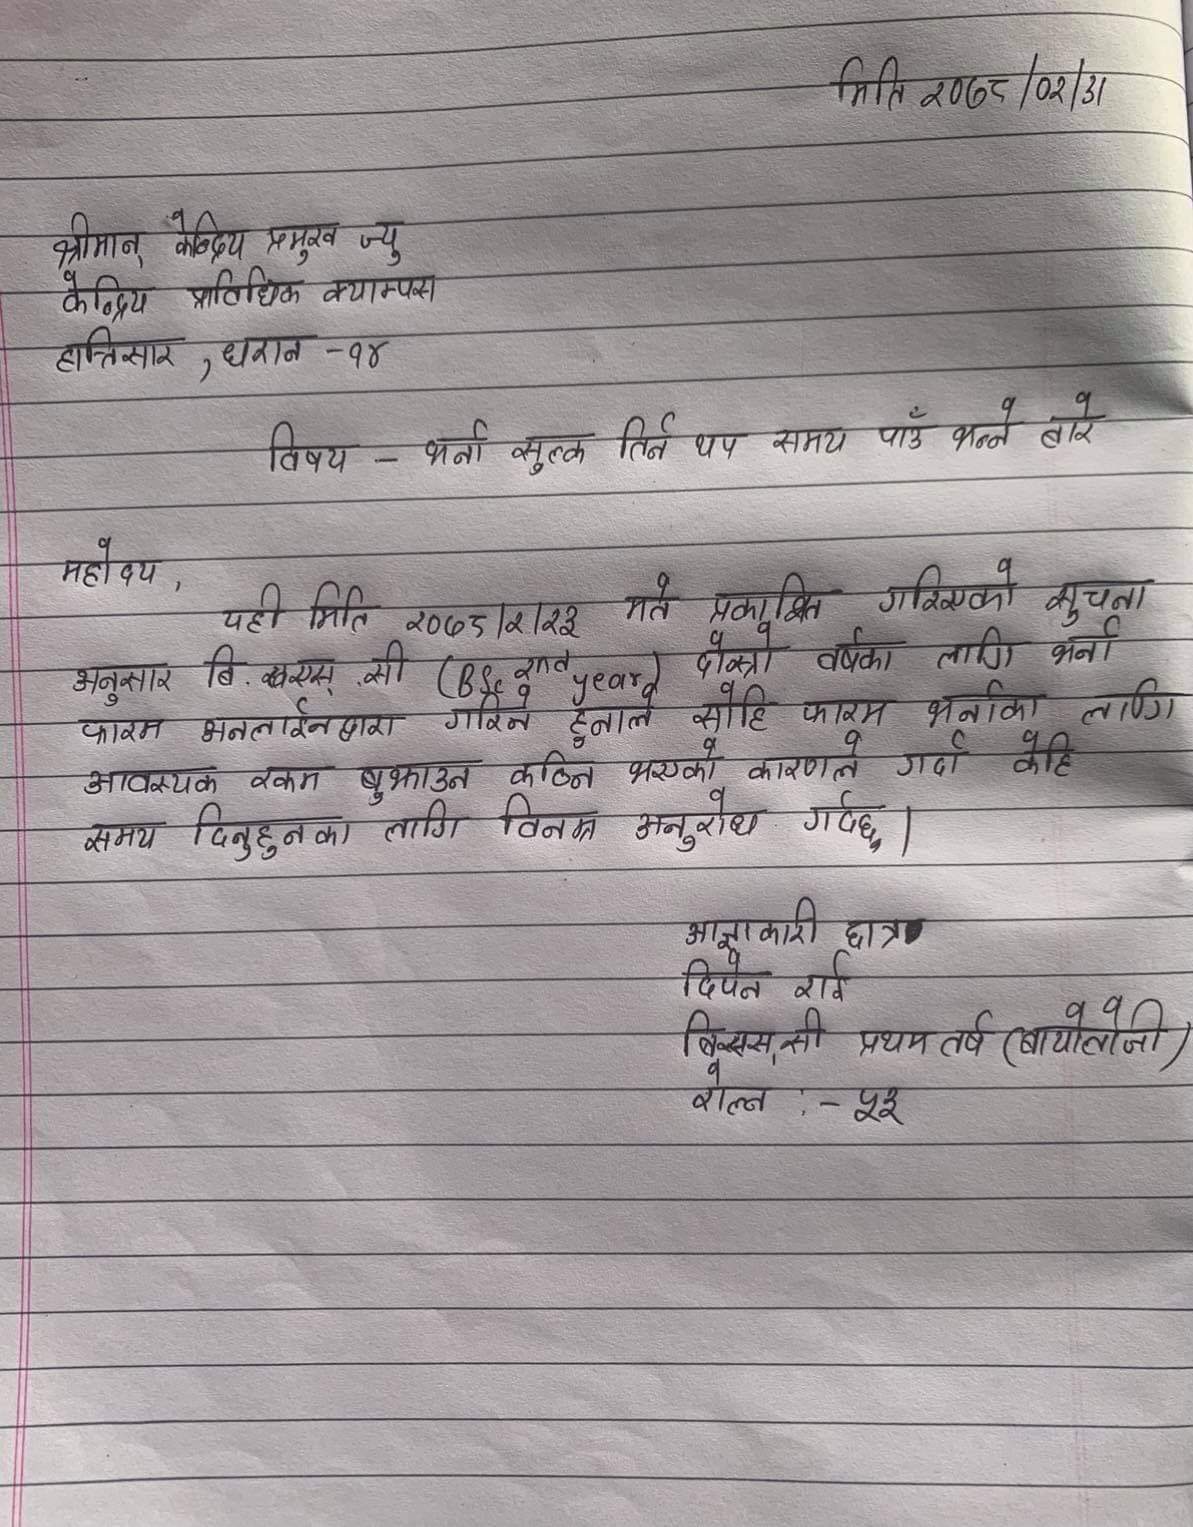 मिति २०७८/०२/३१
श्रीमान् केन्द्रिय प्रमुख ज्यु
केन्द्रिय प्राविधिक क्याम्पस
हात्तिसार, धरान -१४
विषय - भर्ना सुल्क तिर्न थप समय पाउँ भन्ने बारे
महोदय,
यही मिति २०७८/२/२३ मते प्रकाशित गरिएको सुचना
अनुसार बि. एस् .सी (BSc 2nd year) दोस्रो वर्षका लागि भर्ना
फारम अनलाईनद्वारा गरिने हुनाले सोहि फारम भर्नाका लागि
आवस्यक रकम बुझाउन कठिन भएको कारणले गर्दा केहि
समय दिनुहुनका लागि विनम्र अनुरोध गर्दछु।
आज्ञाकारी छात्र
दिपेन राई
बिएस.सी प्रथम वर्ष (बायोलोजी)
रोल्न :- ५३